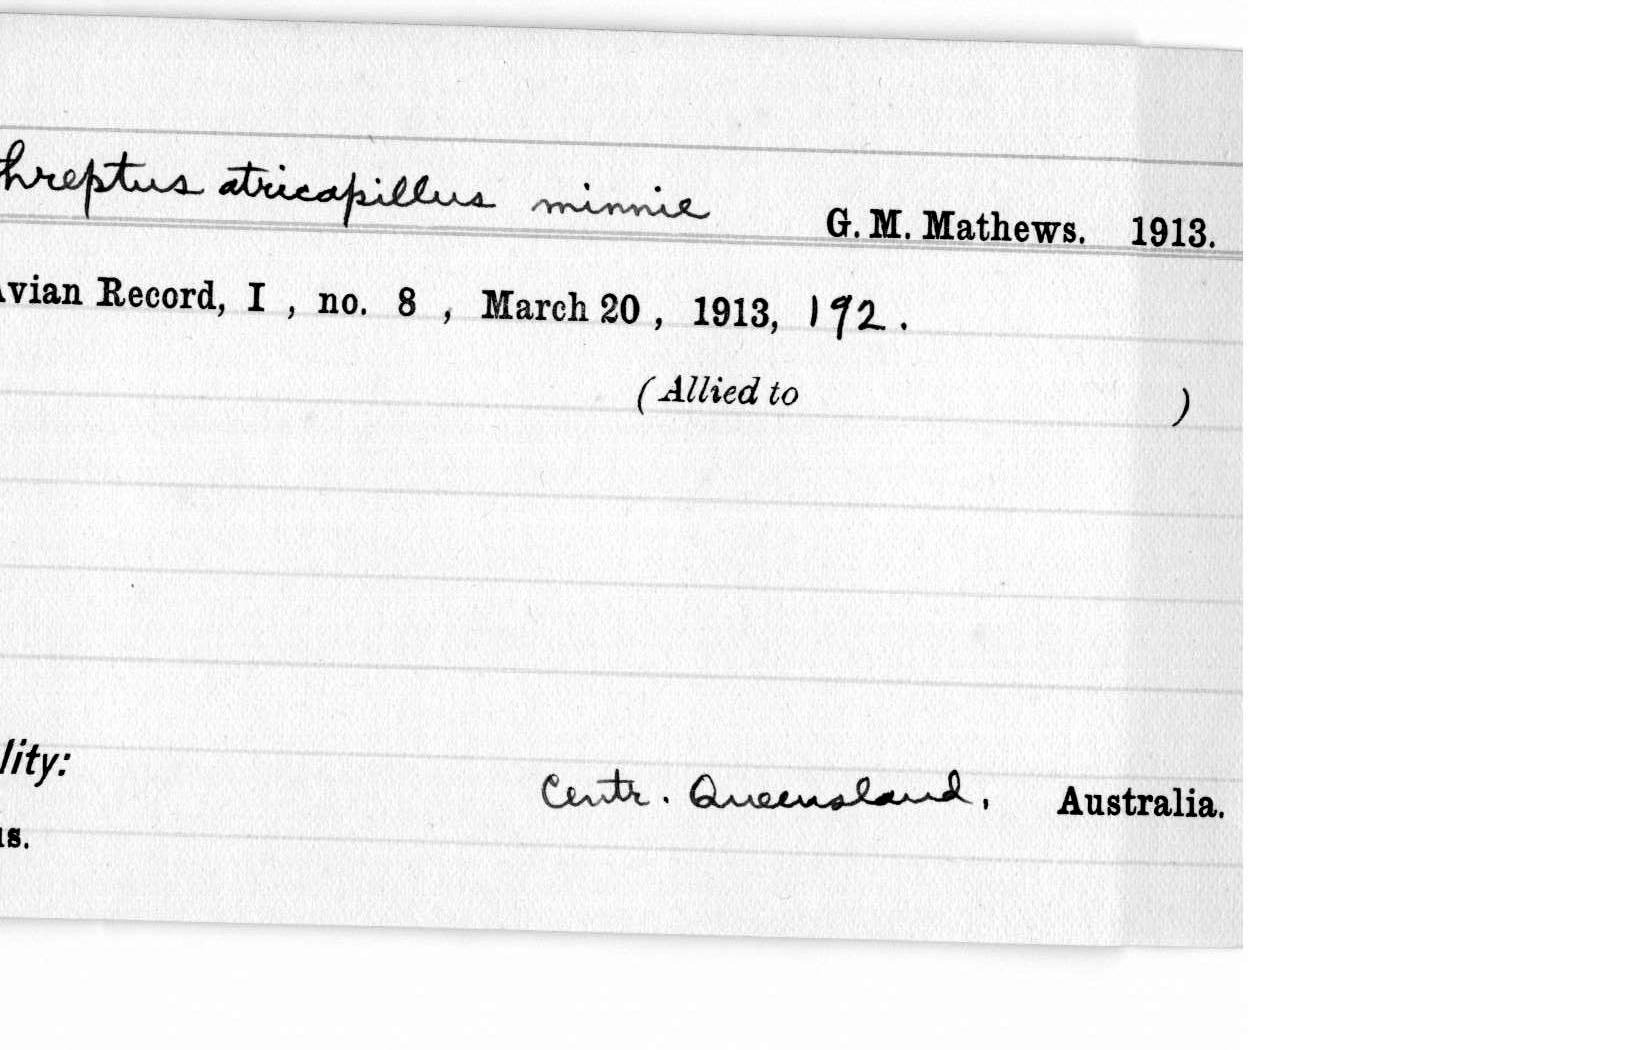 hreptus atricapillus minnie G. M. Mathews. 1913.
vian Record, I , no. 8 , March 20 , 1913, 192 .
(Allied to )
lity:
Centr. Queensland, Australia.
s.